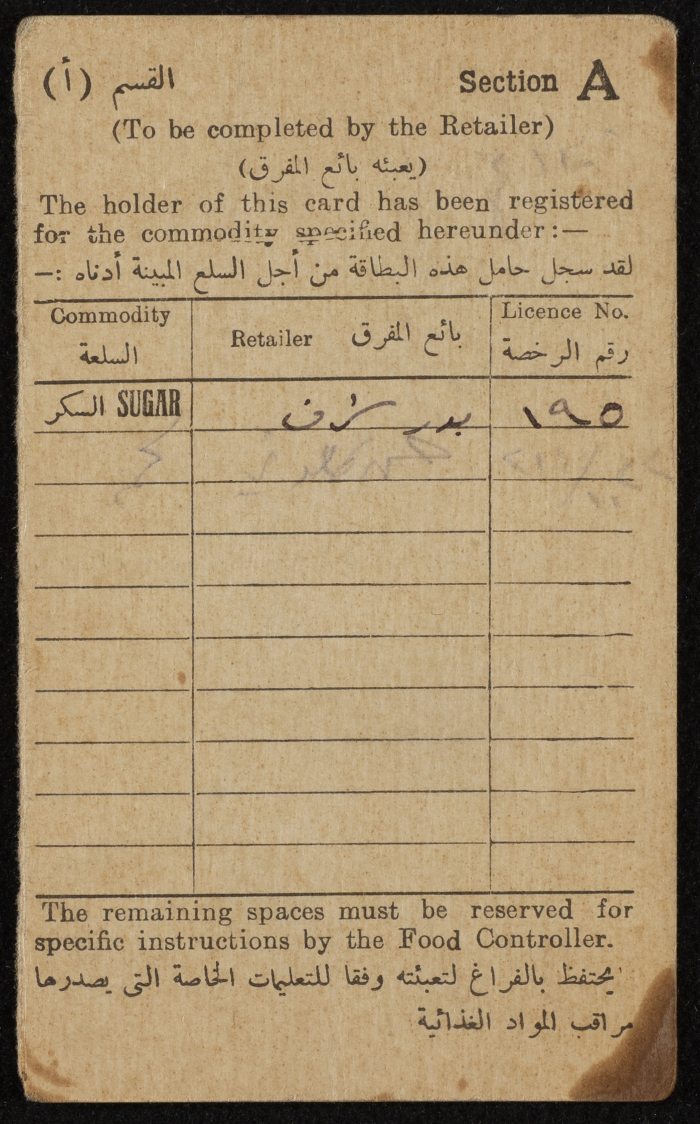 القسم (أ) Section A
(To be completed by the Retailer)
(يعبئه بائع المفرق)
The holder of this card has been registered
for the commodity specified hereunder:—
لقد سجل حامل هذه البطاقة من أجل السلع المبينة أدناه :—
Commodity
السلعة
Retailer بائع المفرق
Licence No.
رقم الرخصة
السكر SUGAR بدر شرف ١٩٥
The remaining spaces must be reserved for
specific instructions by the Food Controller.
يحتفظ بالفراغ لتعبئته وفقا للتعليمات الخاصة التى يصدرها
مراقب المواد الغذائية